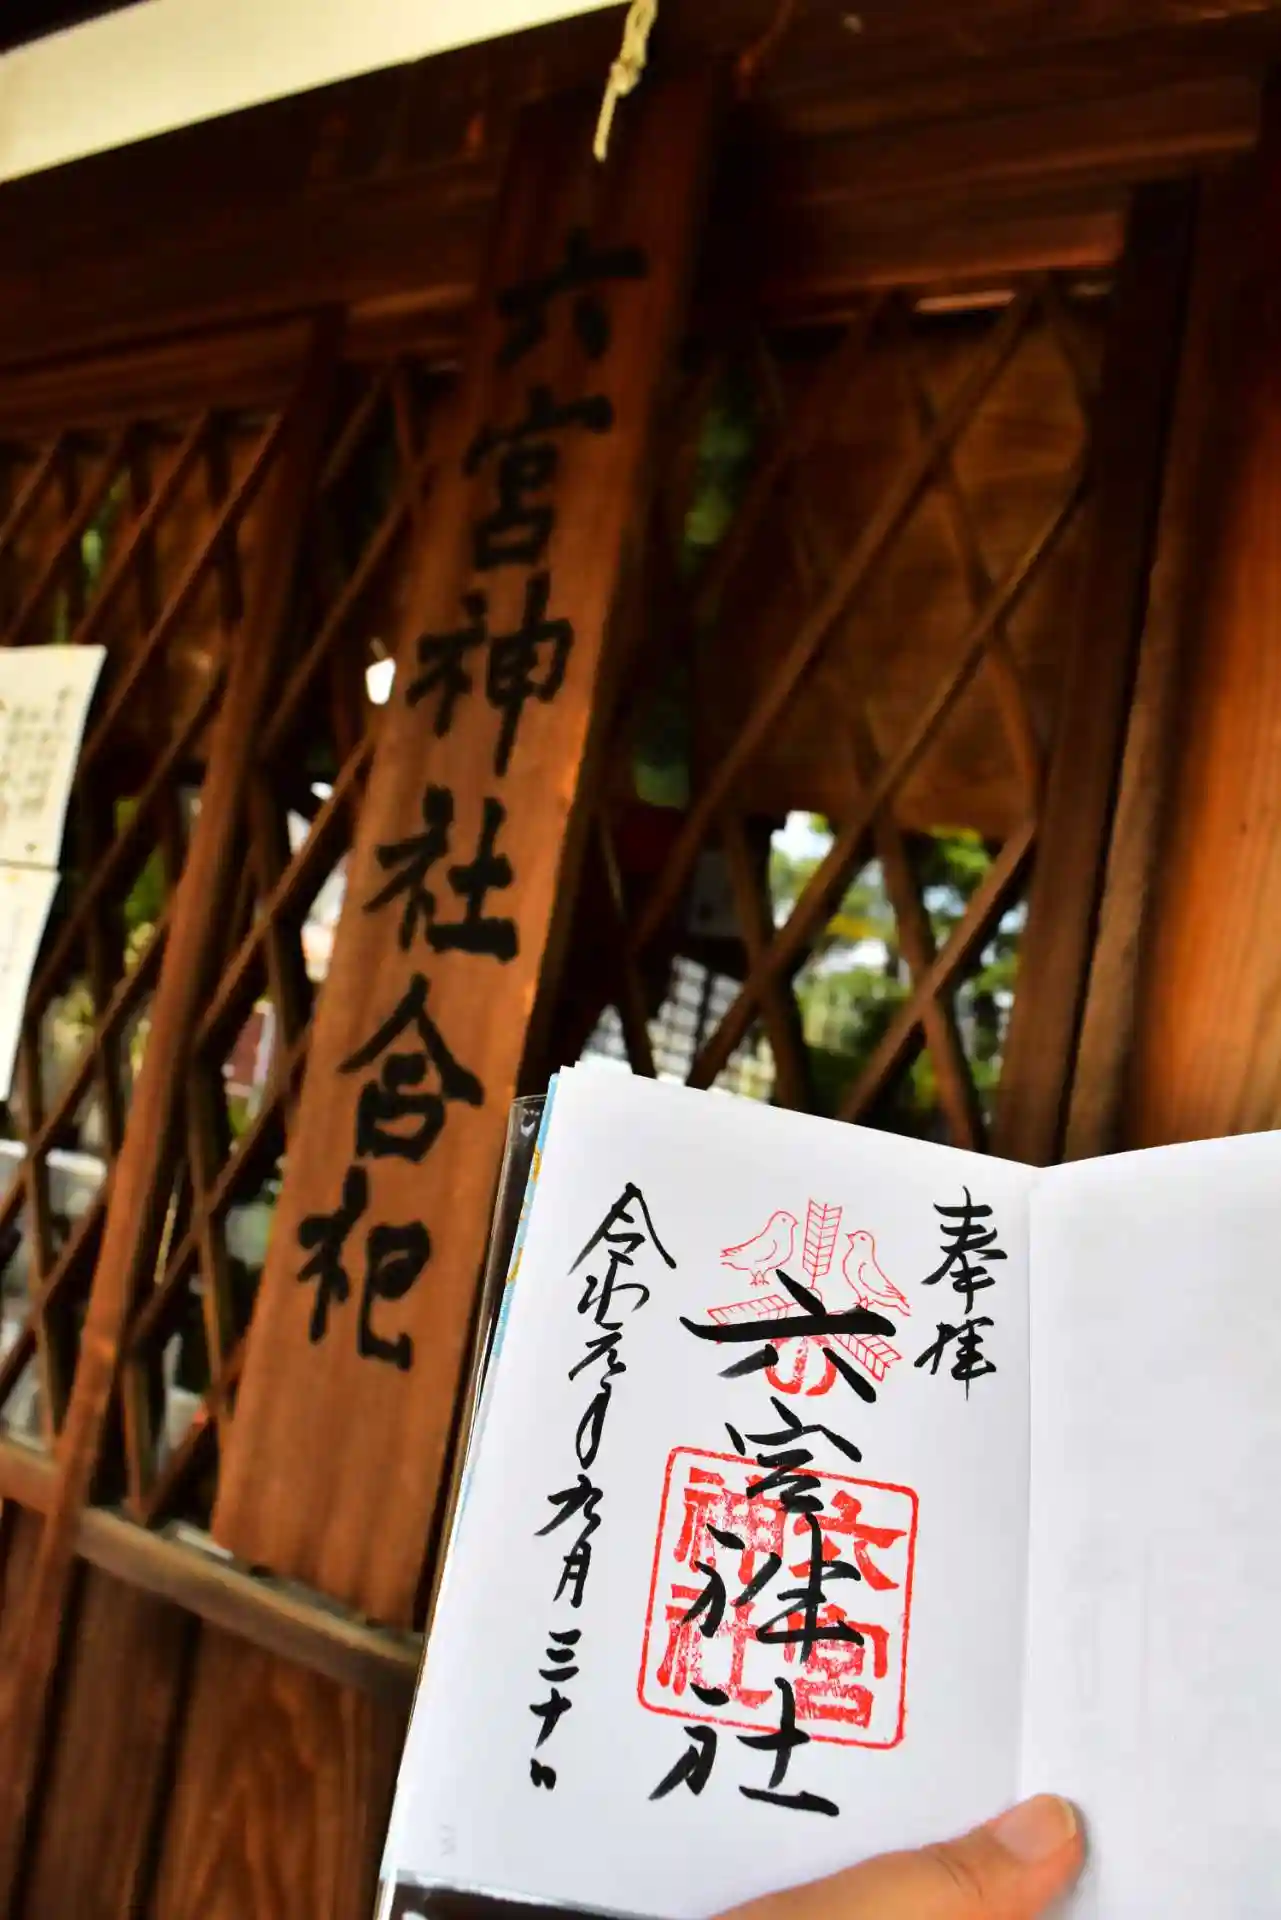 六宮神社合祀
奉拝
六宮神社
六宮
神社
令和元年九月三十日